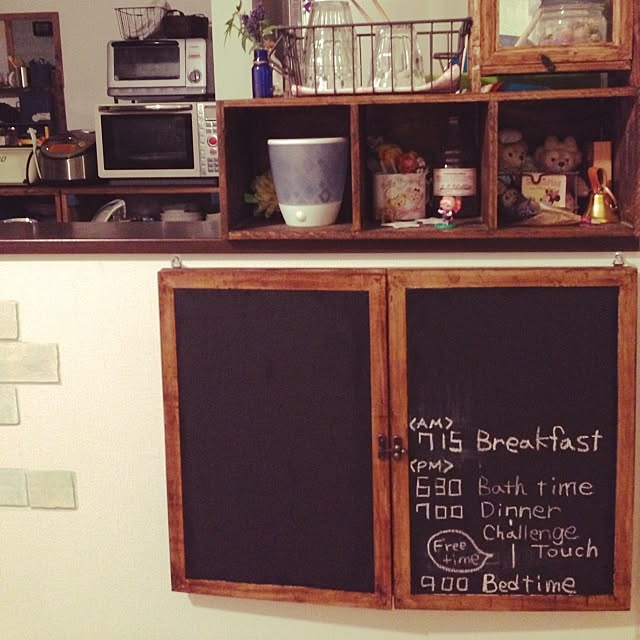 <AM>
715 Breakfast
<PM>
630 Bath time
700 Dinner
Challenge
Free time
1 Touch
900 Bedtime